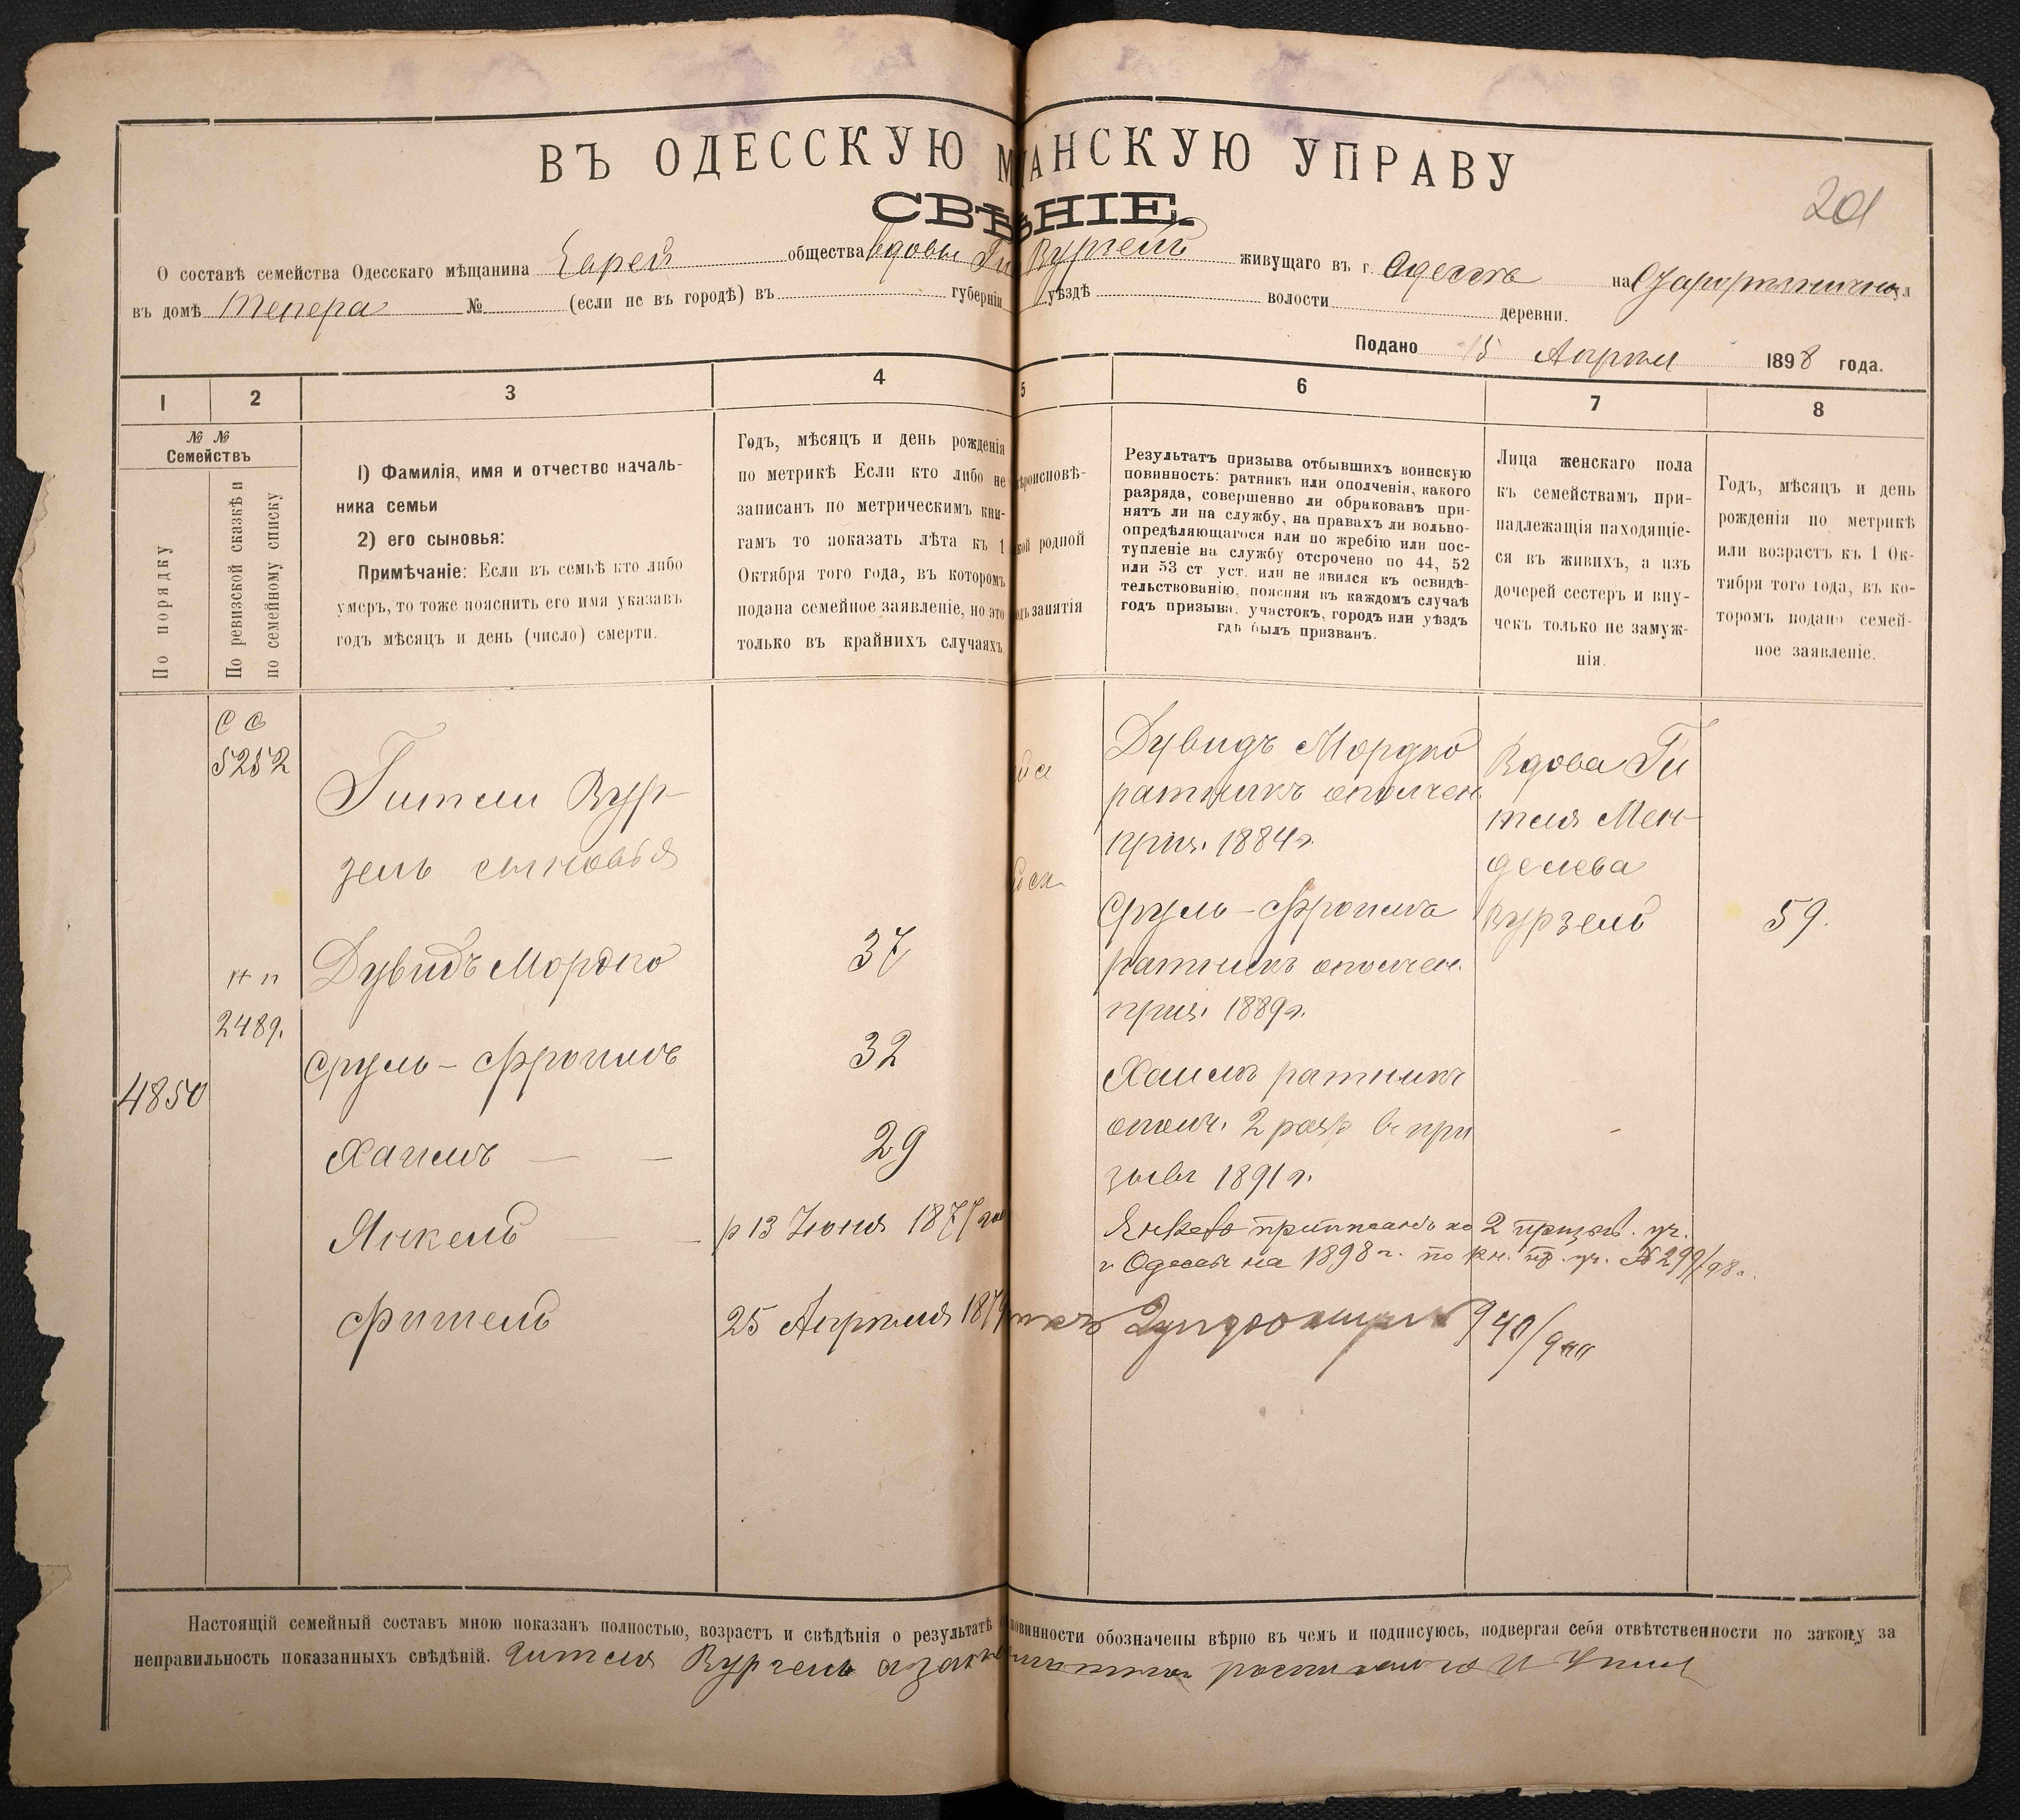 ВЪ ОДЕССКУЮ М АНСКУЮ УПРАВУ
СВѢ ѢНІЕ.
201
О составѣ семейства Одесскаго мѣщанина Еврей общества вдовы Ги Вурзель живущаго въ г. Одессѣ на
въ домѣ Тепера № (если не въ городѣ) въ губерніи уѣздѣ волости деревни.
Подано 15 Апрѣля 1898 года.
1 2 3 4 5 6 7 8
№ № Семействъ
По порядку
По ревизской сказкѣ и по семейному списку
1) Фамилія, имя и отчество началь-
ника семьи
2) его сыновья:
Примѣчаніе: Если въ семьѣ кто либо
умеръ, то тоже пояснить его имя указавъ
годъ мѣсяцъ и день (число) смерти.
Годъ, мѣсяцъ и день рожденія
по метрикѣ Если кто либо не
записанъ по метрическимъ кни-
гамъ то показать лѣта къ 1
Октября того года, въ которомъ
подана семейное заявленіе, но это
только въ крайнихъ случаяхъ.
ѣроисповѣ-
кой родной
одъ занятія
Результатъ призыва отбывшихъ воинскую
повинность: ратникъ или ополченія, какого
разряда, совершенно ли обракованъ при-
нятъ ли на службу, на правахъ ли вольно-
опредѣляющагося или по жребію или пос-
тупленіе на службу отсрочено по 44, 52
или 53 ст уст. или не явился къ освидѣ-
тельствованію, поясняя въ каждомъ случаѣ
годъ призыва, участокъ, городъ или уѣздъ
гдѣ былъ призванъ.
Лица женскаго пола
къ семействамъ при-
надлежащія находящіе-
ся въ живихъ, а изъ
дочерей сестеръ и вну-
чекъ только не замуж-
нія.
Годъ, мѣсяцъ и день
рожденія по метрикѣ
или возрастъ къ 1 Ок-
тября того года, въ ко-
торомъ подано семей-
ное заявленіе.
4850
с с
5252
н п
2489.
Гители Вур-
зель сыновья
Дувидъ Мордко 37
Сруль-Фроимъ 32
Хаимъ — — 29
Янкель — — р 13 Іюня 1877 год
Фитель 25 Апрѣля 187
Дувидъ Мордко
ратникъ ополчен.
приз. 1884 г.
Сруль-Фроимъ
ратникъ ополчен.
приз. 1889 г.
Хаимъ ратникъ
ополч. 2 разр. въ при
зывѣ 1891 г.
Янкель приписанъ ко 2 призыв. уч.
г Одессы на 1898 г. по кн. пр. уч. № 299/98 г.
940/900
Вдова Ги
теля Мен-
делева
Вурзель
59.
Настоящій семейный составъ мною показанъ полностью, возрастъ и свѣдѣнія о результатѣ повинности обозначены вѣрно въ чемъ и подписуюсь, подвергая себя отвѣтственности по закону за
неправильность показанныхъ свѣдѣній. Гителя Вурзель а за